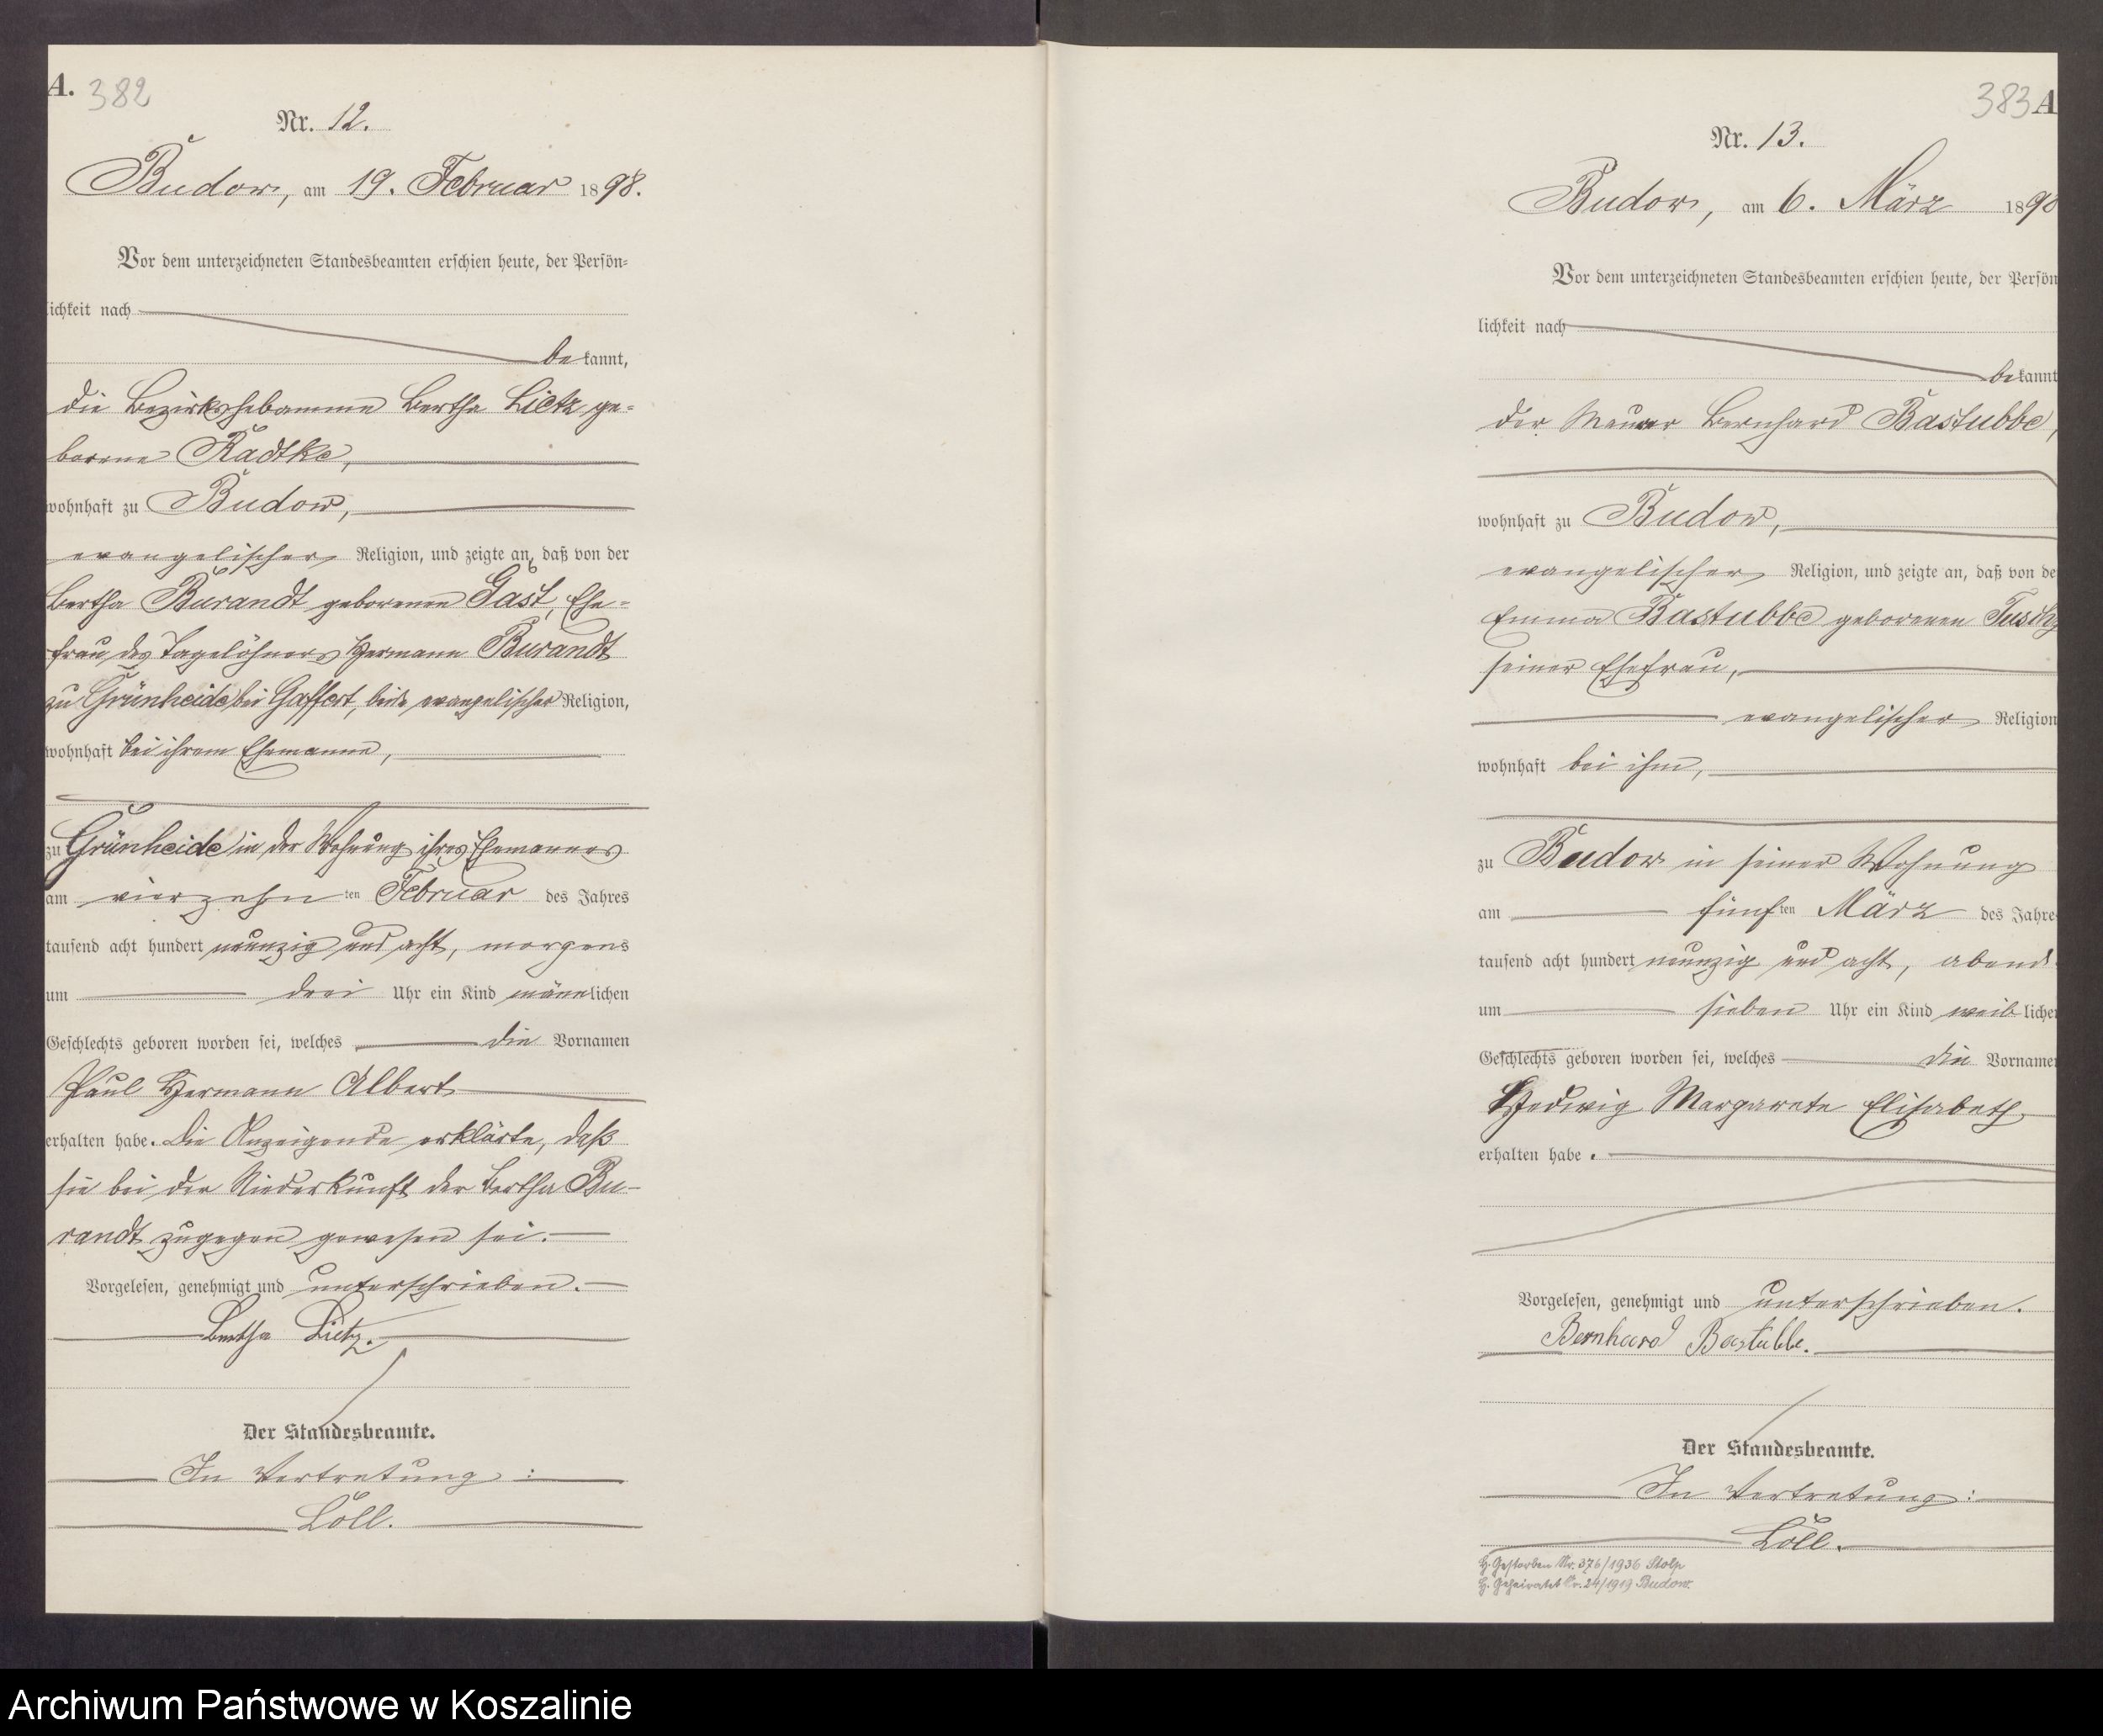 A. 382
Nr. 12.
Budow, am 19. Februar 1898.
Vor dem unterzeichneten Standesbeamten erschien heute, der Persön=
lichkeit nach
be kannt,
die Bezirkshebamme Bertha Lietz ge=
borene Radtke,
wohnhaft zu Budow,
evangelischer Religion, und zeigte an, daß von der
Bertha Burandt geborenen Gast, Ehe=
frau des Tagelöhners Hermann Burandt
zu Grünheide bei Gaffert, beide evangelischer Religion,
wohnhaft bei ihrem Ehemanne,
zu Grünheide in der Wohnung ihres Ehemannes
am vierzehn ten Februar des Jahres
tausend acht hundert neunzig und acht, morgens
um drei Uhr ein Kind männlichen
Geschlechts geboren worden sei, welches die Vornamen
Paul Hermann Albert
erhalten habe. Die Anzeigende erklärte, daß
sie bei der Niederkunft der Bertha Bu-
randt zugegen gewesen sei.
Vorgelesen, genehmigt und unterschrieben.
Bertha Lietz.
Der Standesbeamte.
In Vertretung:
Löll.
383 A
Nr. 13.
Budow, am 6. März 189
Vor dem unterzeichneten Standesbeamten erschien heute, der Persön
lichkeit nach
be kannt
der Maurer Bernhard Bastubbe,
wohnhaft zu Budow,
evangelischer Religion, und zeigte an, daß von de
Emma Bastubbe geborenen
seiner Ehefrau,
evangelischer Religion
wohnhaft bei ihm,
zu Budow in seiner Wohnung
am fünf ten März des Jahre
tausend acht hundert neunzig und acht, abends
um sieben Uhr ein Kind weib liche
Geschlechts geboren worden sei, welches die Vorname
Hedwig Margarete Elisabeth
erhalten habe.
Vorgelesen, genehmigt und unterschrieben.
Bernhard Bastubbe.
Der Standesbeamte.
In Vertretung:
Löll.
H. Gestorben Nr. 376/1936 Stolp
H. Geheiratet Nr. 24/1919 Budow.
Archiwum Państwowe w Koszalinie